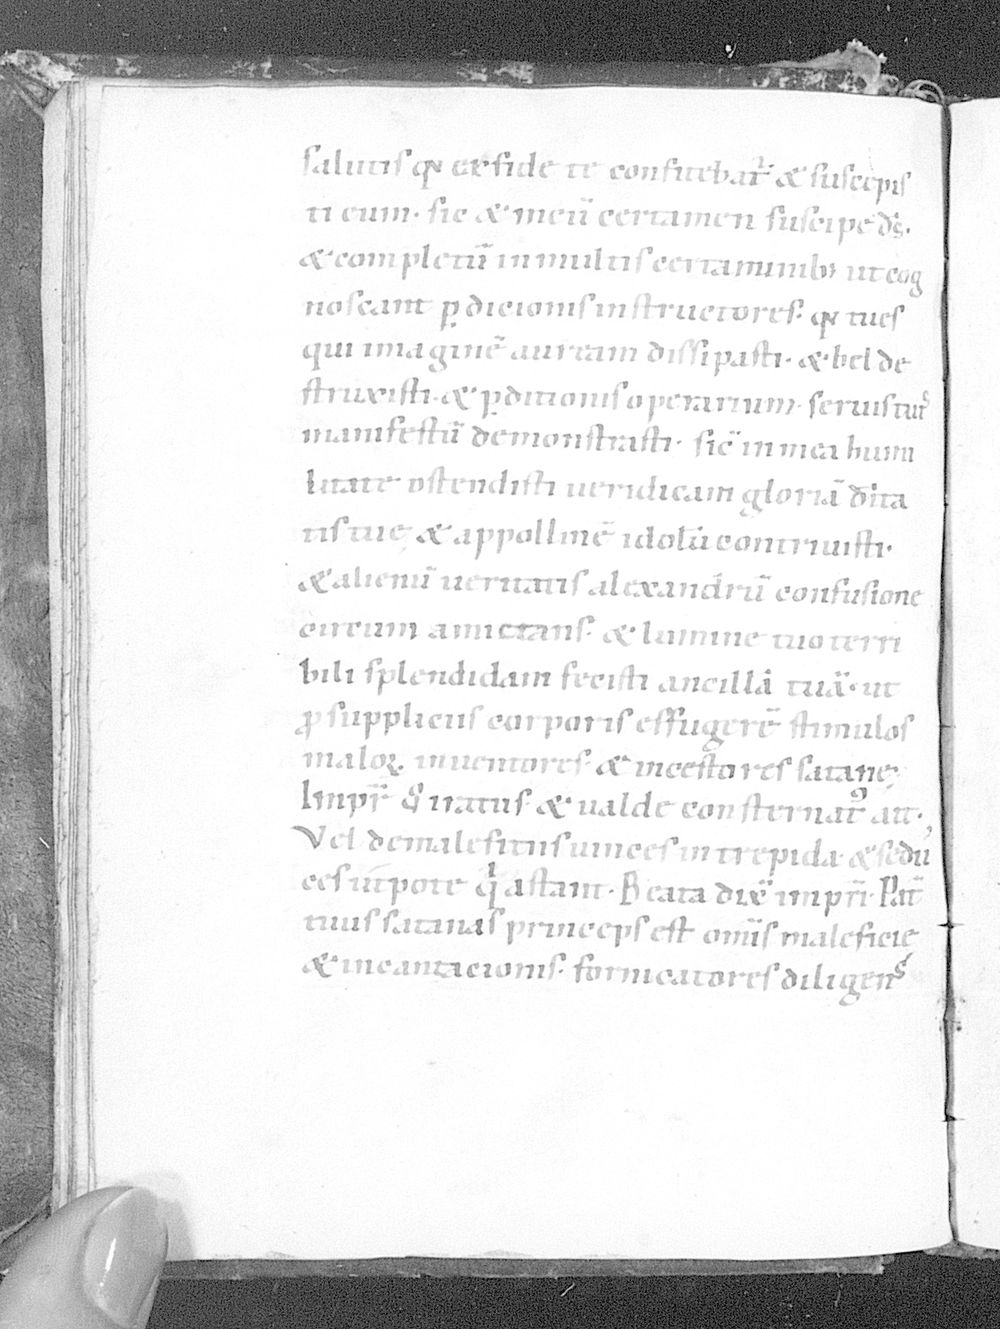 salutis qn̄ ex fide te confitebat᷑ & suscepis
ti eum· sic & meū certamen suscipe ds̄·
& completū in multis certaminibꝫ ut cog
noscant ꝑdicionis instructores· qn̄ tu es
qui imaginē auream dissipasti· & bel de
struxisti· & ꝑditionis operarium· seruis tuis
manifestū demonstrasti· sic̄ in mea humi
litate ostendisti ueridicam gloriā diuita
tis tuę, & appollinē idolū contriuisti·
& alienū ueritatis alexandrū confusione
circum amictans· & lumine tuo terri
bili splendidam fecisti ancillā tuā· ut
ꝓ suppliciis corporis effugerē stimulos
maloꝝ inuentores· & incestores satanę;
Impr̄ g̊ iratus· & ualde consternat᷑ ait·,
Vel de maleficiis uinces intrepida & sedu
ces utpote qⁱ astant· Beata dix̄ impr̄i· Pat̄
tuus satanas princeps est om̄is maleficie
& incantacionis· fornicatores diligens